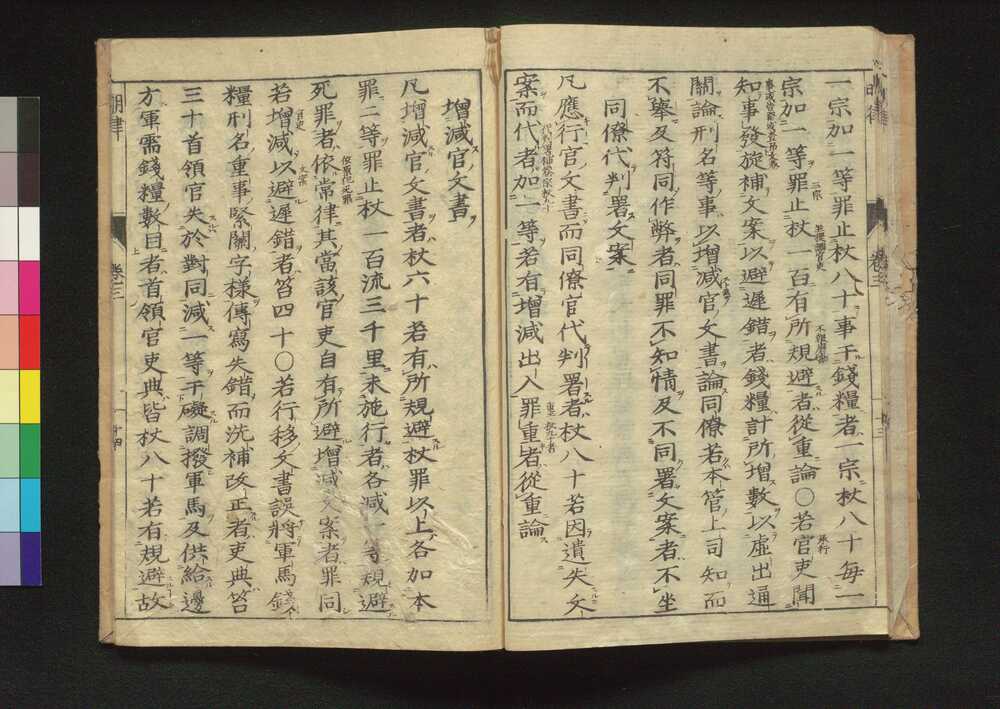 一宗加一等罪止杖八十事干錢糧者一宗杖八十毎一
宗加一等罪止杖一百有所規避者從重論○若官吏聞
知事發旋補文案以避遲錯者錢糧計所增數以虛出通
關論刑名等事以增减官文書論同僚若本管上司知而
不舉及符同作弊者同罪不知情及不同署文案者不坐
同僚代判署文案
凡應行官文書而同僚官代判署者杖八十若因遺失文
案而代者加一等若有增减出入罪重者從重論
增减官文書
凡增减官文書者杖六十若有所規避杖罪以上各加本
罪二等罪止杖一百流三千里未施行者各减一等規避
死罪者依常律其當該官吏自有所避增减文案者罪同
若增减以避遲錯者笞四十○若行移文書誤將軍馬錢
糧刑名重事緊關字樣傳寫失錯而洗補改正者吏典笞
三十首領官失於對同减一等干礙調撥軍馬及供給邊
方軍需錢糧數目者首領官吏典皆杖八十若有規避故
明律
卷三
十四